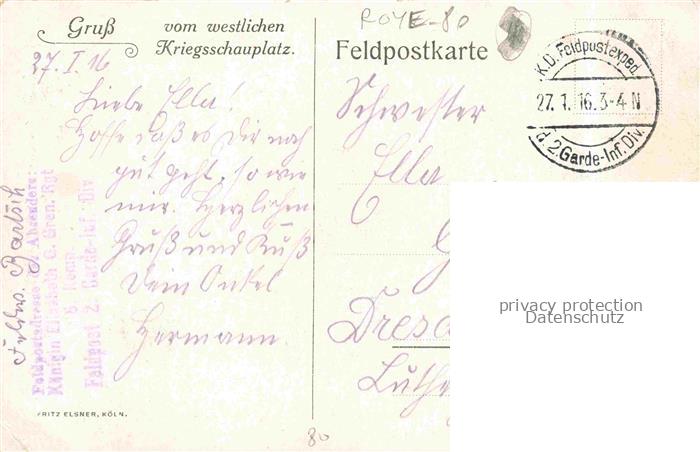 Gruß vom westlichen
Kriegsschauplatz.
27. I. 16
Liebe Ella!
Hoffe daß es dir noch
gut geht, so wie
mir. Herzlichen
Gruß und Kuß
Dein Onkel
Hermann.
Feldw. Bartsch
Feldpostadresse des Absenders:
Königin Elisabeth G. Gren. Rgt
6 Komp.
Feldpost 2. Garde-Inf. Div
FRITZ ELSNER, KÖLN.
80
ROYE-80
Feldpostkarte
K.D. Feldpostexped.
27. 1. 16. 3-4 N
d. 2. Garde-Inf. Div.
Schwester
Ella
Dres
Luthe
privacy protection
Datenschutz